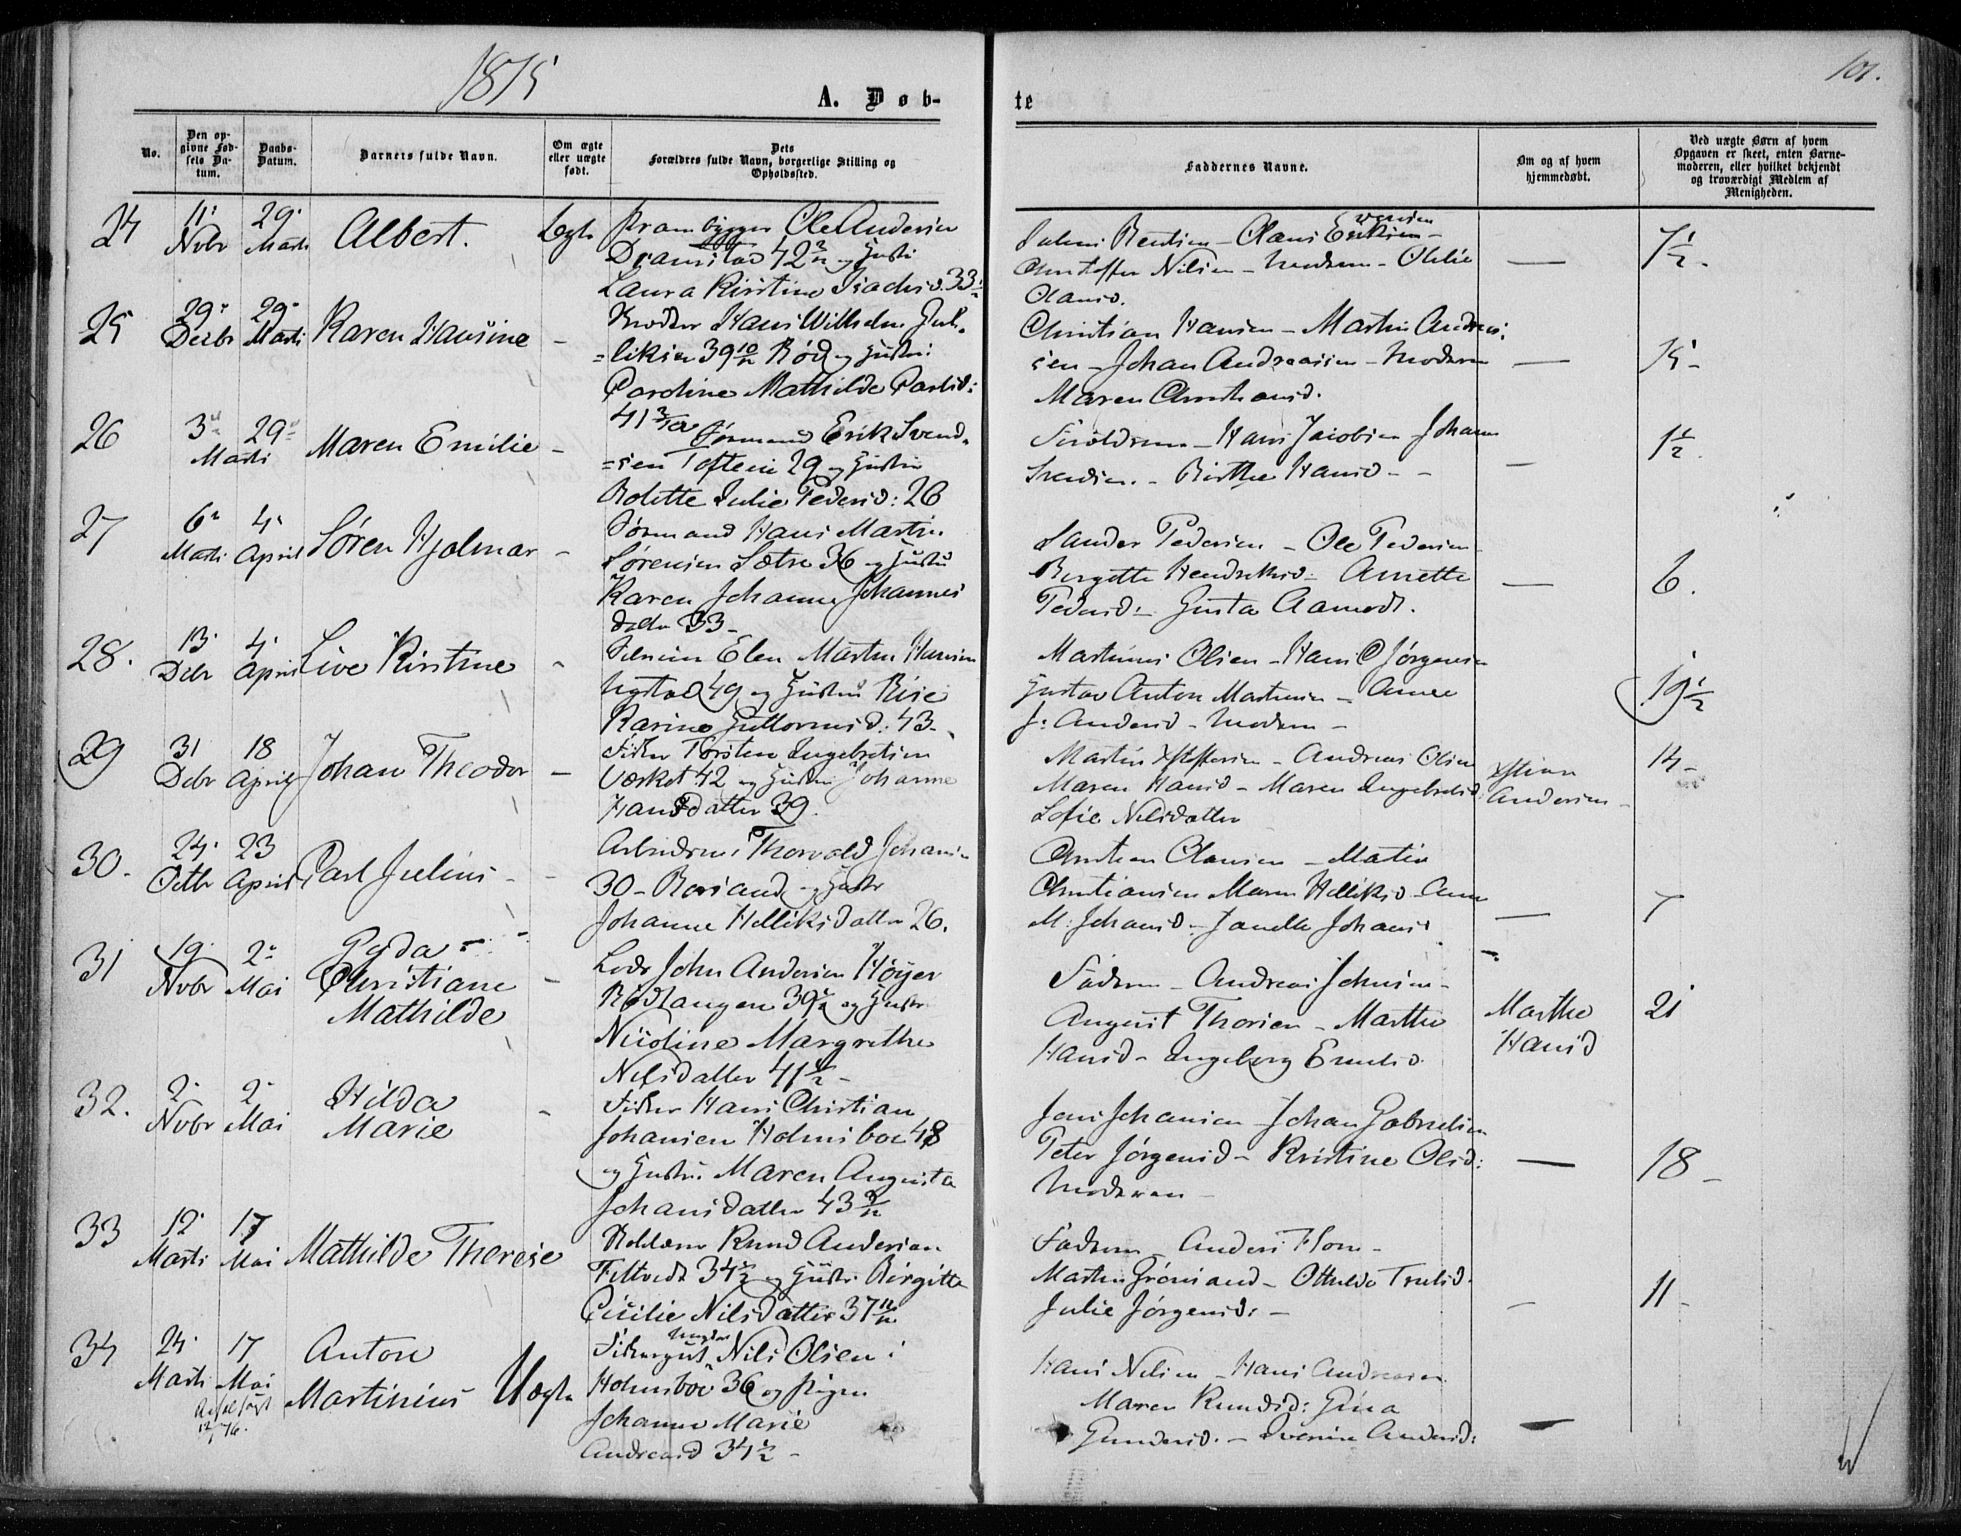 1875
101.
A. Døb-
te
No.
Den opgivne Fødsels Datum.
Daabs-Datum.
Barnets fulde Navn.
Om ægte eller uægte født.
Dets Forældres fulde Navn, borgerlige Stilling og Opholdssted.
Faddernes Navne.
Om og af hvem hjemmedøbt.
Ved uægte Børn af hvem Opgaven er skeet, enten Barnemoderen, eller hvilket bekjendt og troværdigt Medlem af Menigheden.
24
11. Nvbr
29. Marts
Albert.
Ole Andersen
Dramstad 42 og Hustr
Laura Kirstine Isachsd. 33
Claus Eriksen
Evensen
Christoffer Nilsen - Modern - OleLie
Olausd.
7½.
25
29. Decbr
29. Marts
Karen Hansine
Hans Wilhelm
39 10/12 Rød og Hustr:
Caroline Mathilde Carlsd:
41 3/12
Christian Hansen - Martin Andrea-
sen - Johan Andreassen - Modern
Maren Christiansd.
15 -
26
3. Marts
29.
Maren Emilie
Sømand Erik Svend-
=sen Tofteni 29 og Hustru
Bolette Julie Pedersd: 26
Forældrene - Hans Jacobsen Johann
Svendsen - Birthe Hansd -
1½.
27
6. Marts
4. April
Søren Hjalmar
Sømand Hans Martin
Sørensen Sætre 36 og Hustru
Karen Johanne Johannes
datr 33 -
Sander Pedersen - Ole Pedersen
Bergette Hendriksd - Annette
Pedersd. - Gusta Aamodt.
6.
28.
13. Debr
4. April
Live Kirstine
Martin Hansen
49 og Hustru Lise
Karine Guttormsd. 43 -
Martinus Olsen - Hans C Jørgensen
Gustav Anton Martinsen - Anne
J: Andersd - Modern -
19½
29
31 Debr
18 April
Johan Theodor
Fisker Torsten Ingebretsen
Værket 42 og Hustru Johanne
Hansdatter 39.
Martin Xstoffersen - Andreas Olsen
Maren Hansd - Maren Ingebretsd
Sofie Nilsdatter
Xstian Andersen
14 -
30.
24. Octbr
23 April
Carl Julius
Arbeidsm: Thorvald Johans:
30 - og Hustr
Johanne Helliksdatter 26.
Christian Clausen - Matin
Christiansen Maren Helliksd - Ann
M. Johansd - Janette Johansd
7
31
19 Nvbr
2. Mai
Gyda
Christiane
Mathilde
Lods John Andersen Høyer
Rødtangen 39 og Hustr
Nicoline Margrethe
Nilsdatter 41½ -
Fadren - Andreas Johnsen -
August Thorsen - Marthe
Hansd - Ingeborg Emilsd.
Marthe Hansd
21
32.
2. Nvbr
2. Mai
Hilda
Marie
Fisker Hans Christian
Johansen Holmsboe 48
og Hustru Maren Augusta
Johansdatter 43
Jens Johansen - Johan Gabrielsen
Peter Jørgensd - Kristine Olsd:
Moderen -
18 -
33
12. Marts
17 Mai
Mathilde Therese
Knud Andersen
Filtvedt 34½ og Hustr: Birgitte
Cicilie Nilsdatter 37
Fadren - Anders Flom -
Martin Grønsand - Othilde Trulsd.
Julie Jørgensd: -
11 -
34
24. Marts
17 Mai
Anton
Martinius
Uægte
Ungkar
Nils Olsen i
Holmsboe 36 og Pigen
Johanne Marie
Andreasd 34½ -
Hans Nilsen - Hans Andreasen
Maren Knudsd: Gina
Gundersd. - Andersd: